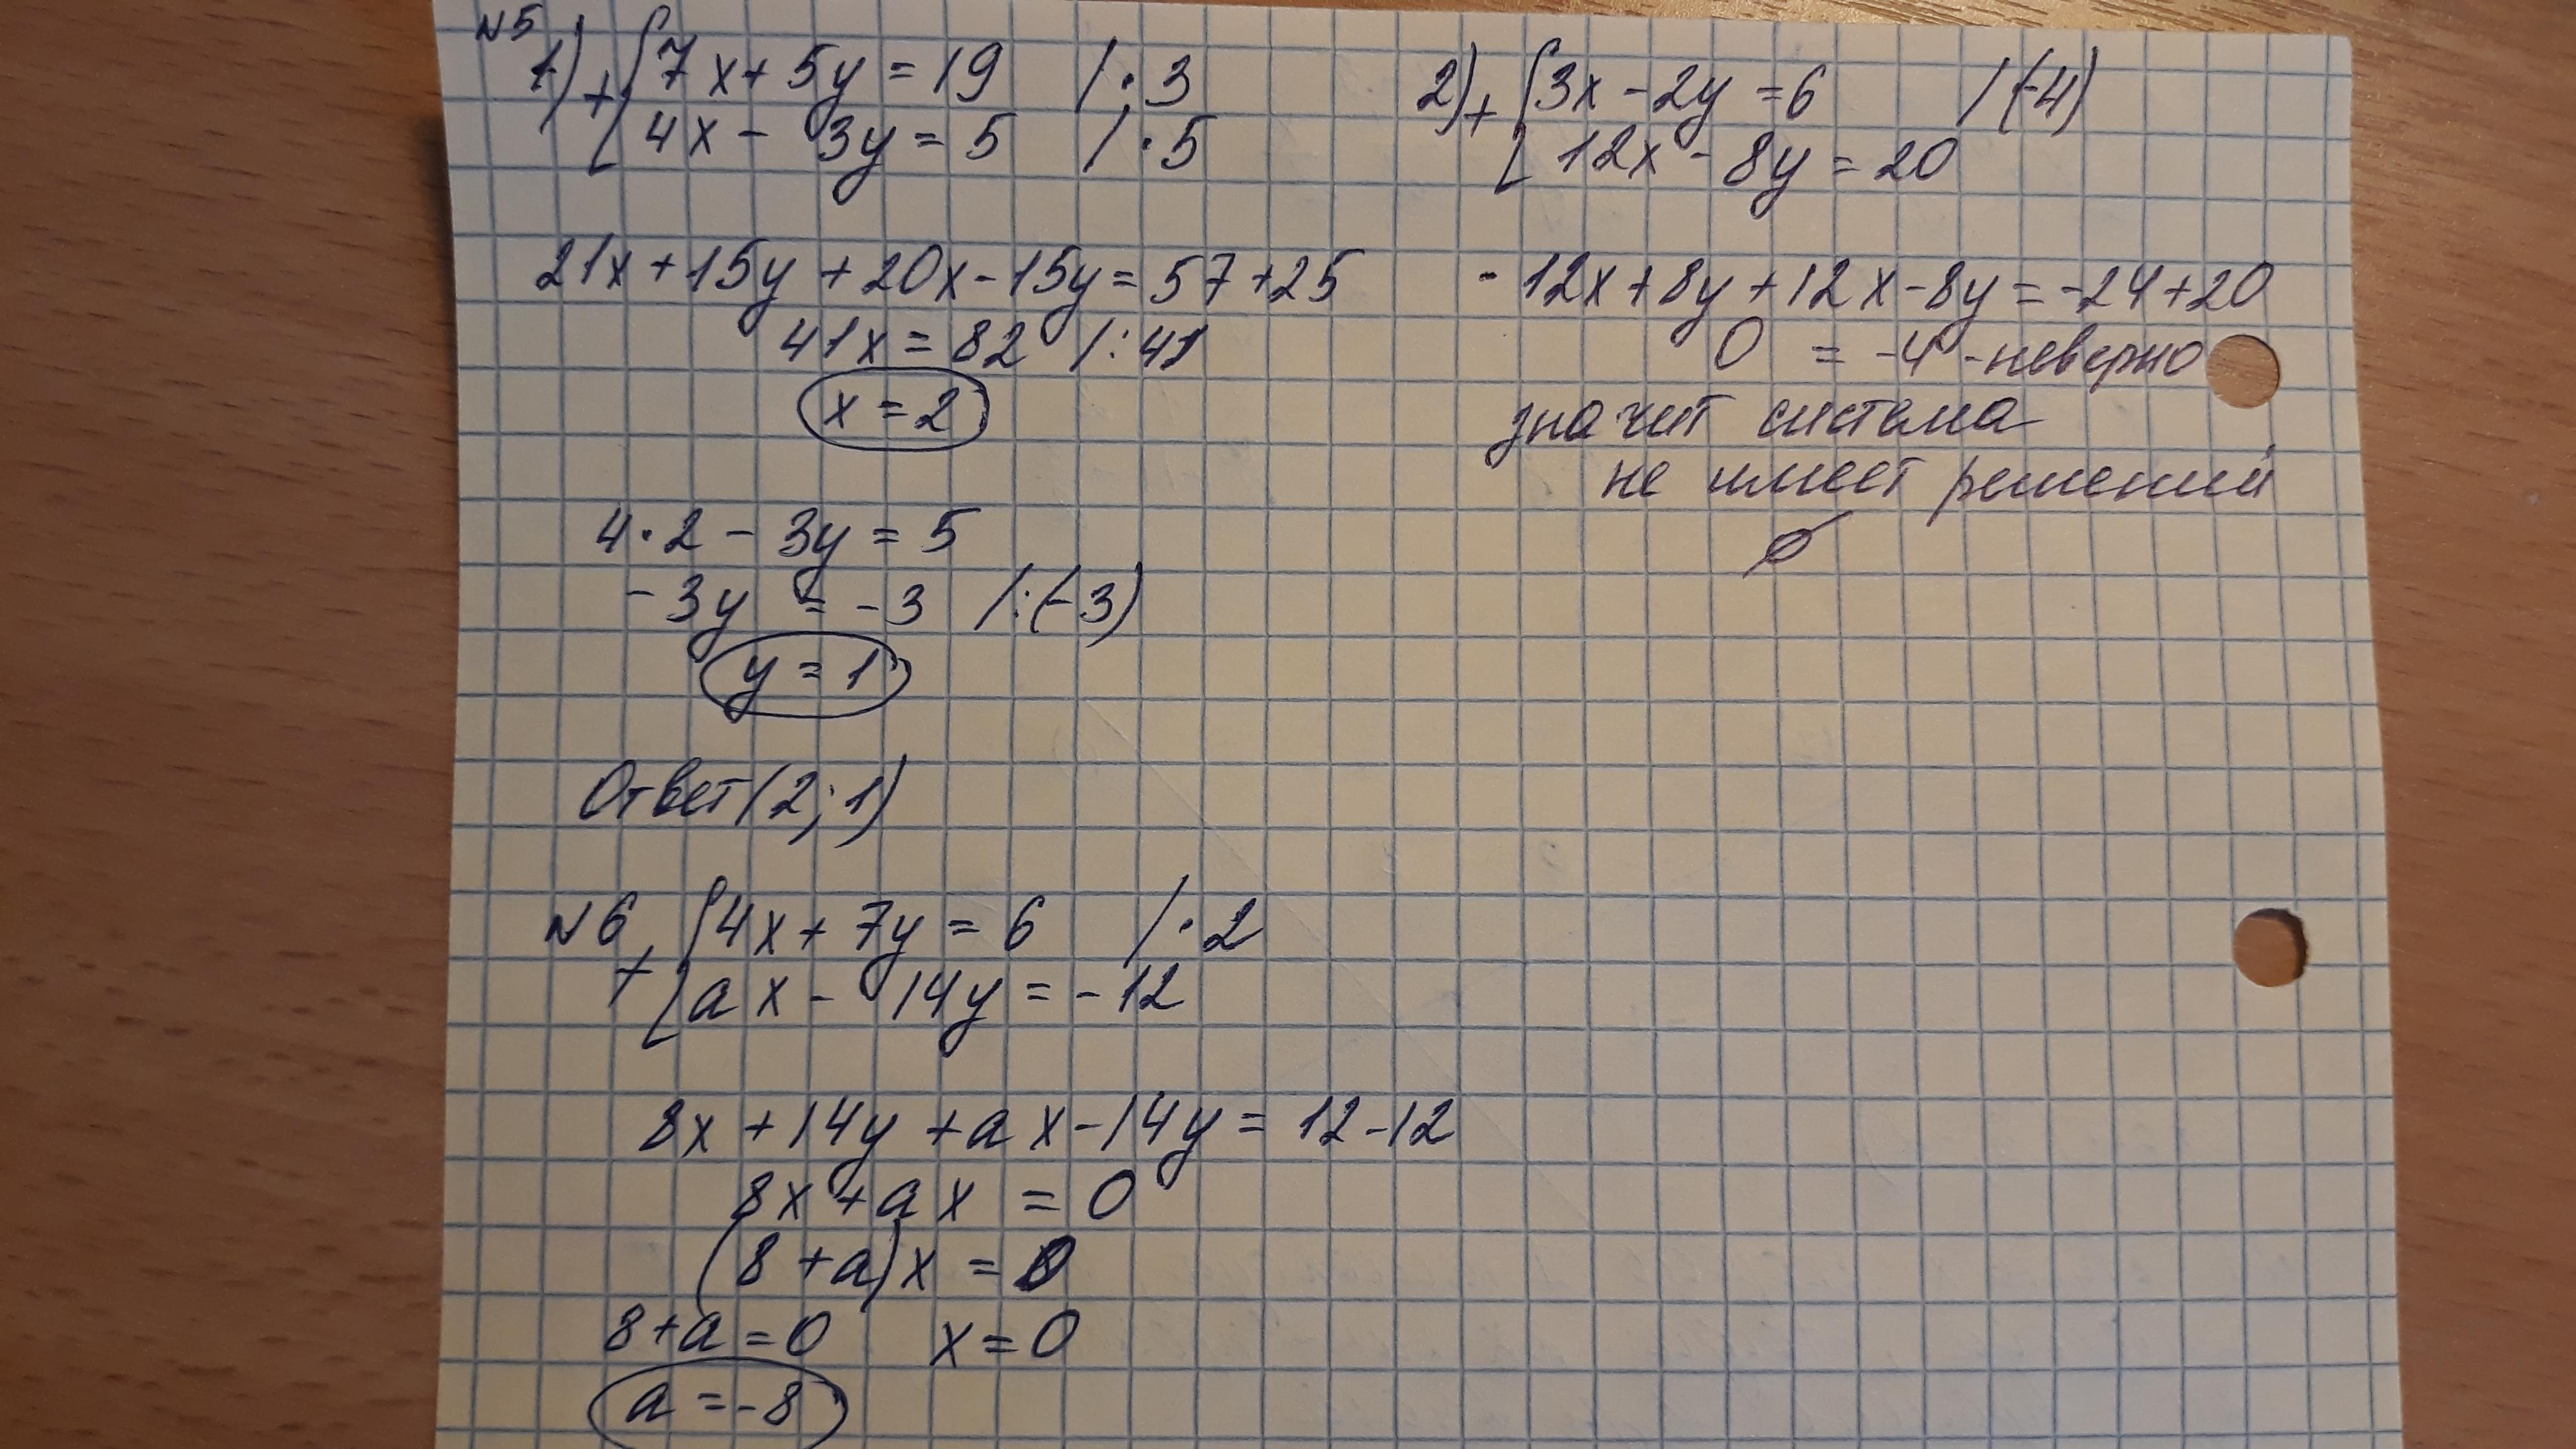 N5
1) + { 7x + 5y = 19 / · 3
4x - 3y = 5 / · 5
21x + 15y + 20x - 15y = 57 + 25
41x = 82 / : 41
x = 2
4 · 2 - 3y = 5
-3y = -3 / : (-3)
y = 1
Ответ (2; 1)
2) + { 3x - 2y = 6 / (-4)
12x - 8y = 20
- 12x + 8y + 12x - 8y = -24 + 20
0 = -4 - неверно
значит система
не имеет решений
∅
N6 + { 4x + 7y = 6 / · 2
ax - 14y = -12
8x + 14y + ax - 14y = 12 - 12
8x + ax = 0
(8 + a)x = 0
8 + a = 0 x = 0
a = -8